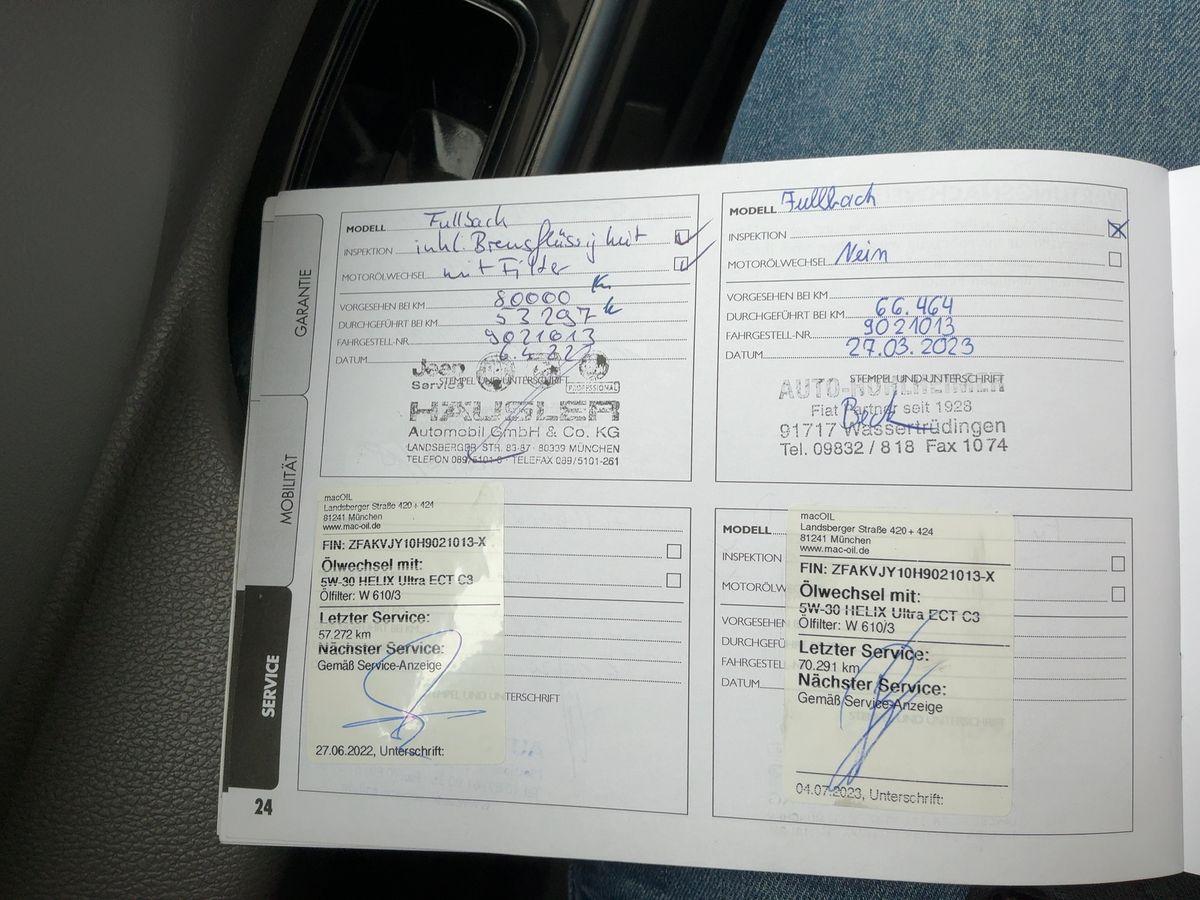 GARANTIE
MOBILITÄT
SERVICE
24
MODELL Fullbach
INSPEKTION inkl. Bremsflüssigkeit
MOTORÖLWECHSEL mit Filter
VORGESEHEN BEI KM 80000 Km
DURCHGEFÜHRT BEI KM 53297
FAHRGESTELL-NR. 9021013
DATUM 6.4.22
STEMPEL UND UNTERSCHRIFT
Jeep
Service
PROFESSIONAL
HÄUSLER
Automobil GmbH & Co. KG
LANDSBERGER STR. 83-87 · 80339 MÜNCHEN
TELEFON 089/5101-0 · TELEFAX 089/5101-261
MODELL Fullbach
INSPEKTION
MOTORÖLWECHSEL Nein
VORGESEHEN BEI KM
DURCHGEFÜHRT BEI KM 66.464
FAHRGESTELL-NR. 9021013
DATUM 27.03.2023
STEMPEL UND UNTERSCHRIFT
Fiat Partner seit 1928
Beck
91717 Wassertrüdingen
Tel. 09832 / 818 Fax 1074
macOIL
Landsberger Straße 420 + 424
81241 München
www.mac-oil.de
FIN: ZFAKVJY10H9021013-X
Ölwechsel mit:
5W-30 HELIX Ultra ECT C3
Ölfilter: W 610/3
Letzter Service:
57.272 km
Nächster Service:
Gemäß Service-Anzeige
TEMPEL UND UNTERSCHRIFT
27.06.2022, Unterschrift:
MODELL
INSPEKTION
MOTORÖLW
VORGESEHEN
DURCHGEFÜ
FAHRGESTELL
DATUM
macOIL
Landsberger Straße 420 + 424
81241 München
www.mac-oil.de
FIN: ZFAKVJY10H9021013-X
Ölwechsel mit:
5W-30 HELIX Ultra ECT C3
Ölfilter: W 610/3
Letzter Service:
70.291 km
Nächster Service:
Gemäß Service-Anzeige
04.07.2023, Unterschrift: